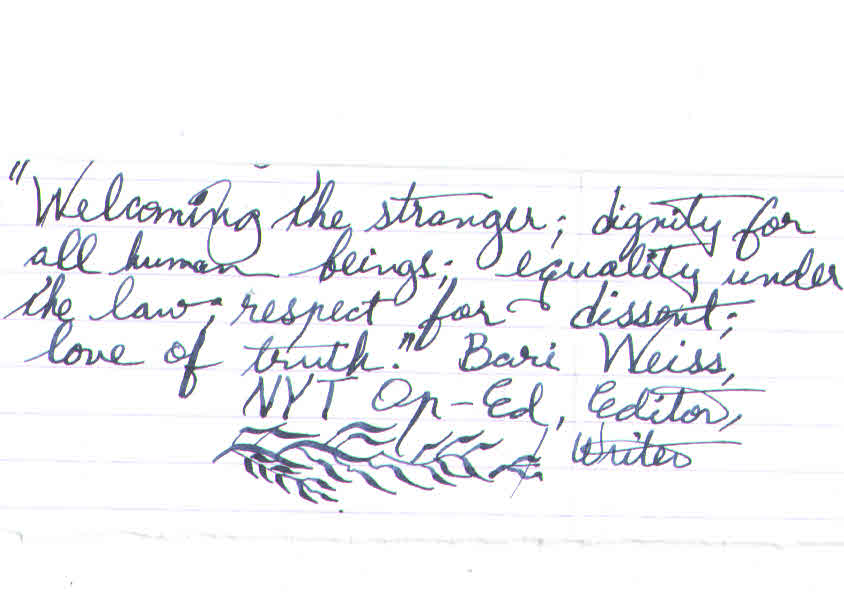 "Welcoming the stranger; dignity for
all human beings; equality under
the law; respect for dissent;
love of truth." Bari Weiss,
NYT Op-Ed, Editor,
Writer